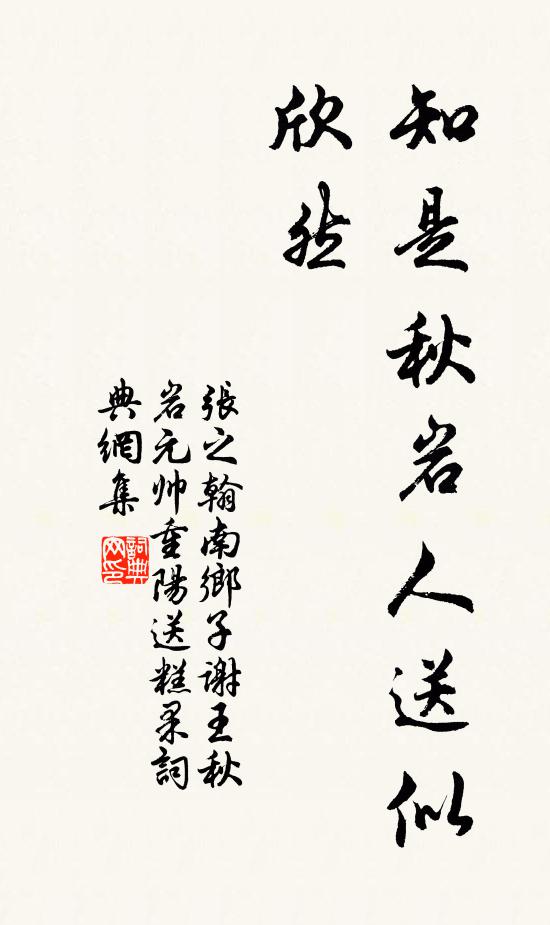 知是秋岩人送似
欣然
張之翰南鄉子謝王秋
岩元帅重陽送糕果詞
典網集
詞典
网印